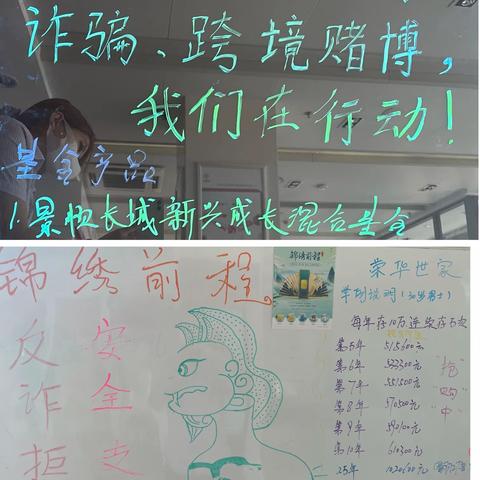 诈骗、跨境赌博,
我们在行动!
基金产品
1.景恒长城新兴成长混合基金
锦绣前程。
反 安
诈 全
拒 支
锦绣前程
荣华世家
举例说明(30岁男士)
每年存10万连续存5次
第5年 515600元
第6年 533300元
第7年 551500元
第8年 570500元
第9年 590100元
第10年 610300元
25年 1020600元
"抢购中"